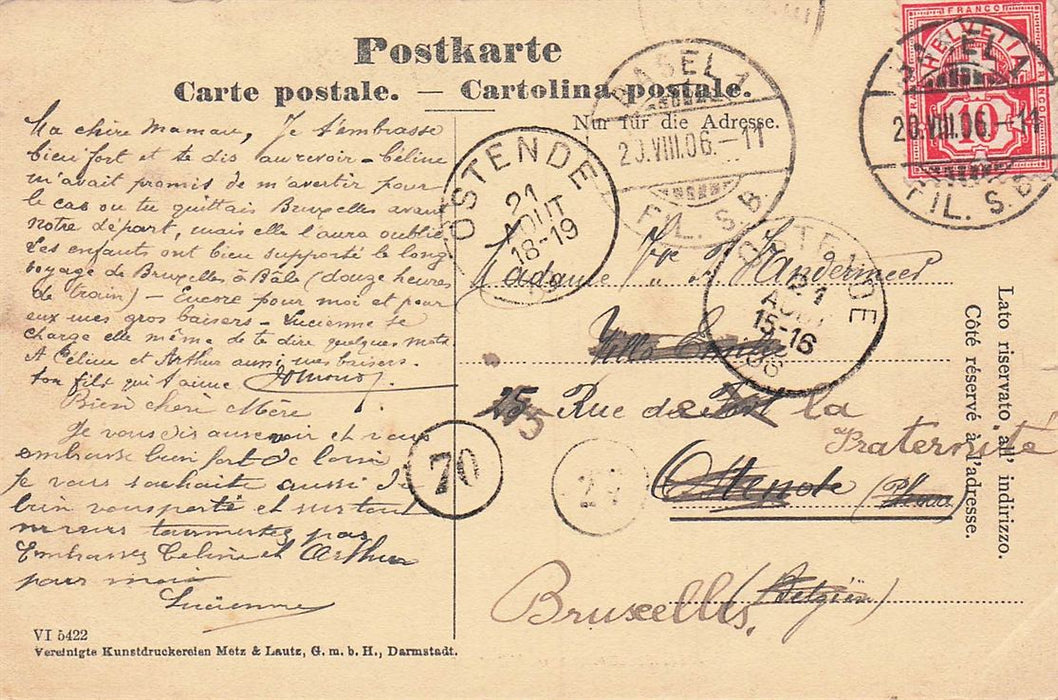 Postkarte
Carte postale. — Cartolina postale.
Nur für die Adresse.
FRANCO
HELVETIA
10
BASEL 1
20.VIII.06.-11
FIL. S.B.
BASEL 1
20.VIII.06.-11
FIL. S.B.
OSTENDE
21
AOUT
18-19
OSTENDE
21
AOUT
15-16
06
Ma chère Maman, Je t'embrasse
bien fort et te dis au revoir - Céline
m'avait promis de m'avertir pour
le cas ou tu quittais Bruxelles avant
notre départ, mais elle l'aura oublié
Les enfants ont bien supporté le long
voyage de Bruxelles à Bâle (douze heures
de train) - Encore pour moi et pour
eux mes gros baisers - Lucienne se
charge elle même de te dire quelques mots
A Céline et Arthur aussi mes baisers.
ton fils qui t'aime
Bien chèri Mère
Je vous dis au revoir et vous
embrasse bien fort de loin
Je vous souhaite aussi de
bien vous porté et surtout
tourmentez pas
Embrassez Celine et Arthur
pour moi
Lucienne
Madame Vandermeer
Villa
25 5 Rue de la
Fraternité
Ostende
(Belgien)
Bruxelles.
70
Lato riservato all' indirizzo.
Côté réservé à l'adresse.
VI 5422
Vereinigte Kunstdruckereien Metz & Lautz, G. m. b. H., Darmstadt.